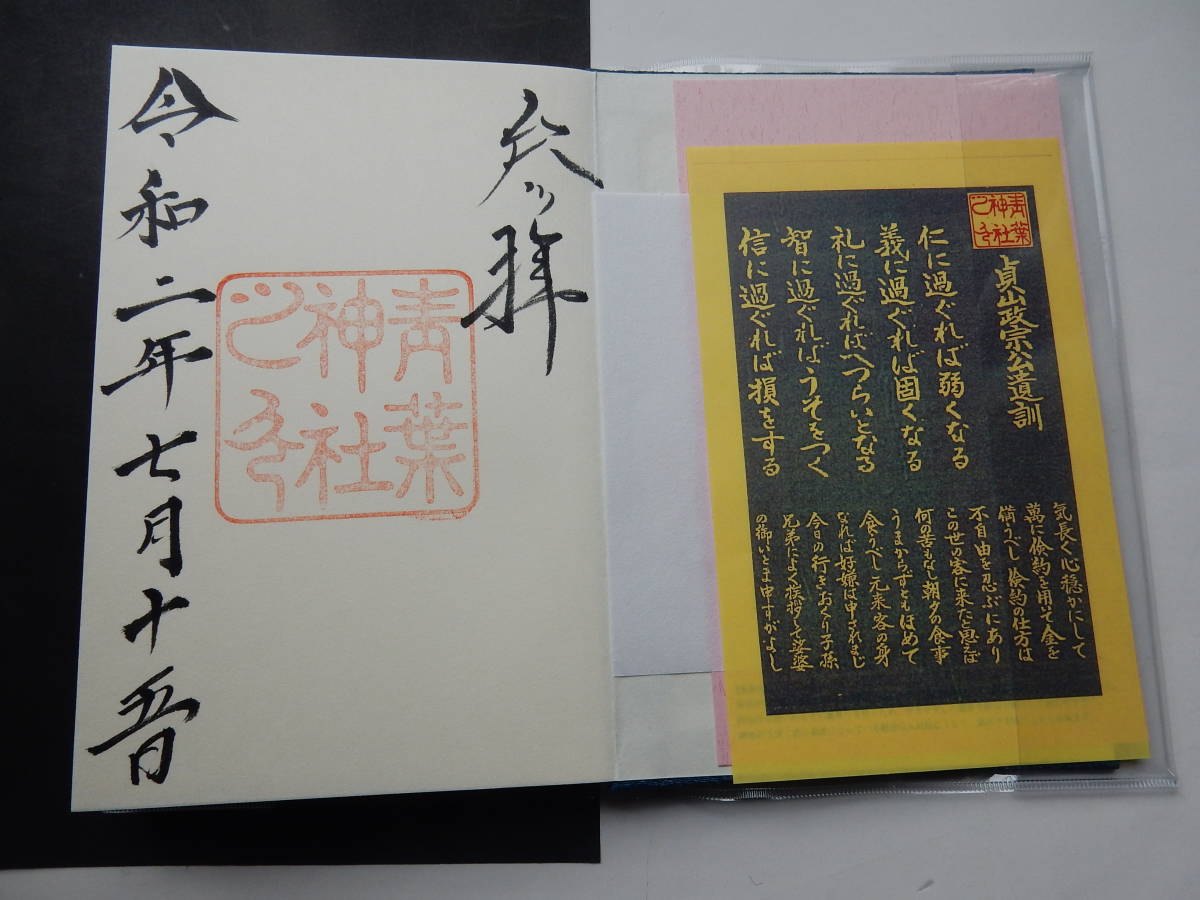 青葉
神社
之印
貞山政宗公遺訓
仁に過ぐれば弱くなる
義に過ぐれば固くなる
礼に過ぐればへつらいとなる
智に過ぐればうそをつく
信に過ぐれば損をする
気長く心穏かにして
萬に倹約を用いて金を
備うべし 倹約の仕方は
不自由を忍ぶにあり
この世の客に来たと思えば
何の苦もなし朝夕の食事
うまからずともほめて
食うべし 元来客の身
なれば好嫌は申されまじ
今日の行きおくり子孫
兄弟によく挨拶して娑婆
の御いとま申すがよし
参拝
青葉
神社
之印
令和二年七月十五日